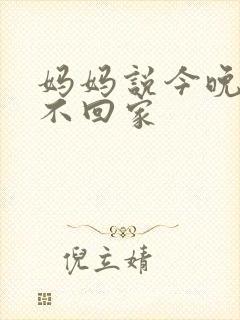 妈妈説今晚
不回家
倪立婧